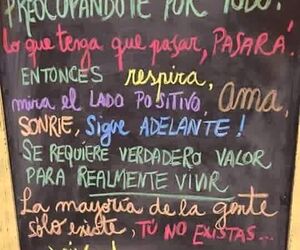 PREOCUPÁNDOTE POR TODO!
lo que tenga que pasar, PASARÁ.
ENTONCES respira,
mira el LADO POSITIVO, ama,
SONRIE, Sigue ADELANTE!
SE REQUIERE VERDADERO VALOR
PARA REALMENTE VIVIR.
La mayoría de la gente
sólo existe, TÚ NO EXISTAS...